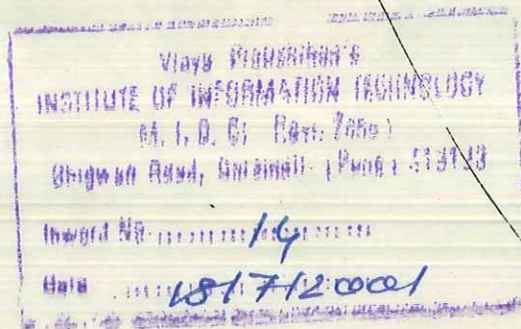 Vidya Pratishthan's
INSTITUTE OF INFORMATION TECHNOLOGY
M. I. D. C.
Bhigwan Road, Baramati. (Pune) 413133
Inward No. 14
Date 18/7/2001